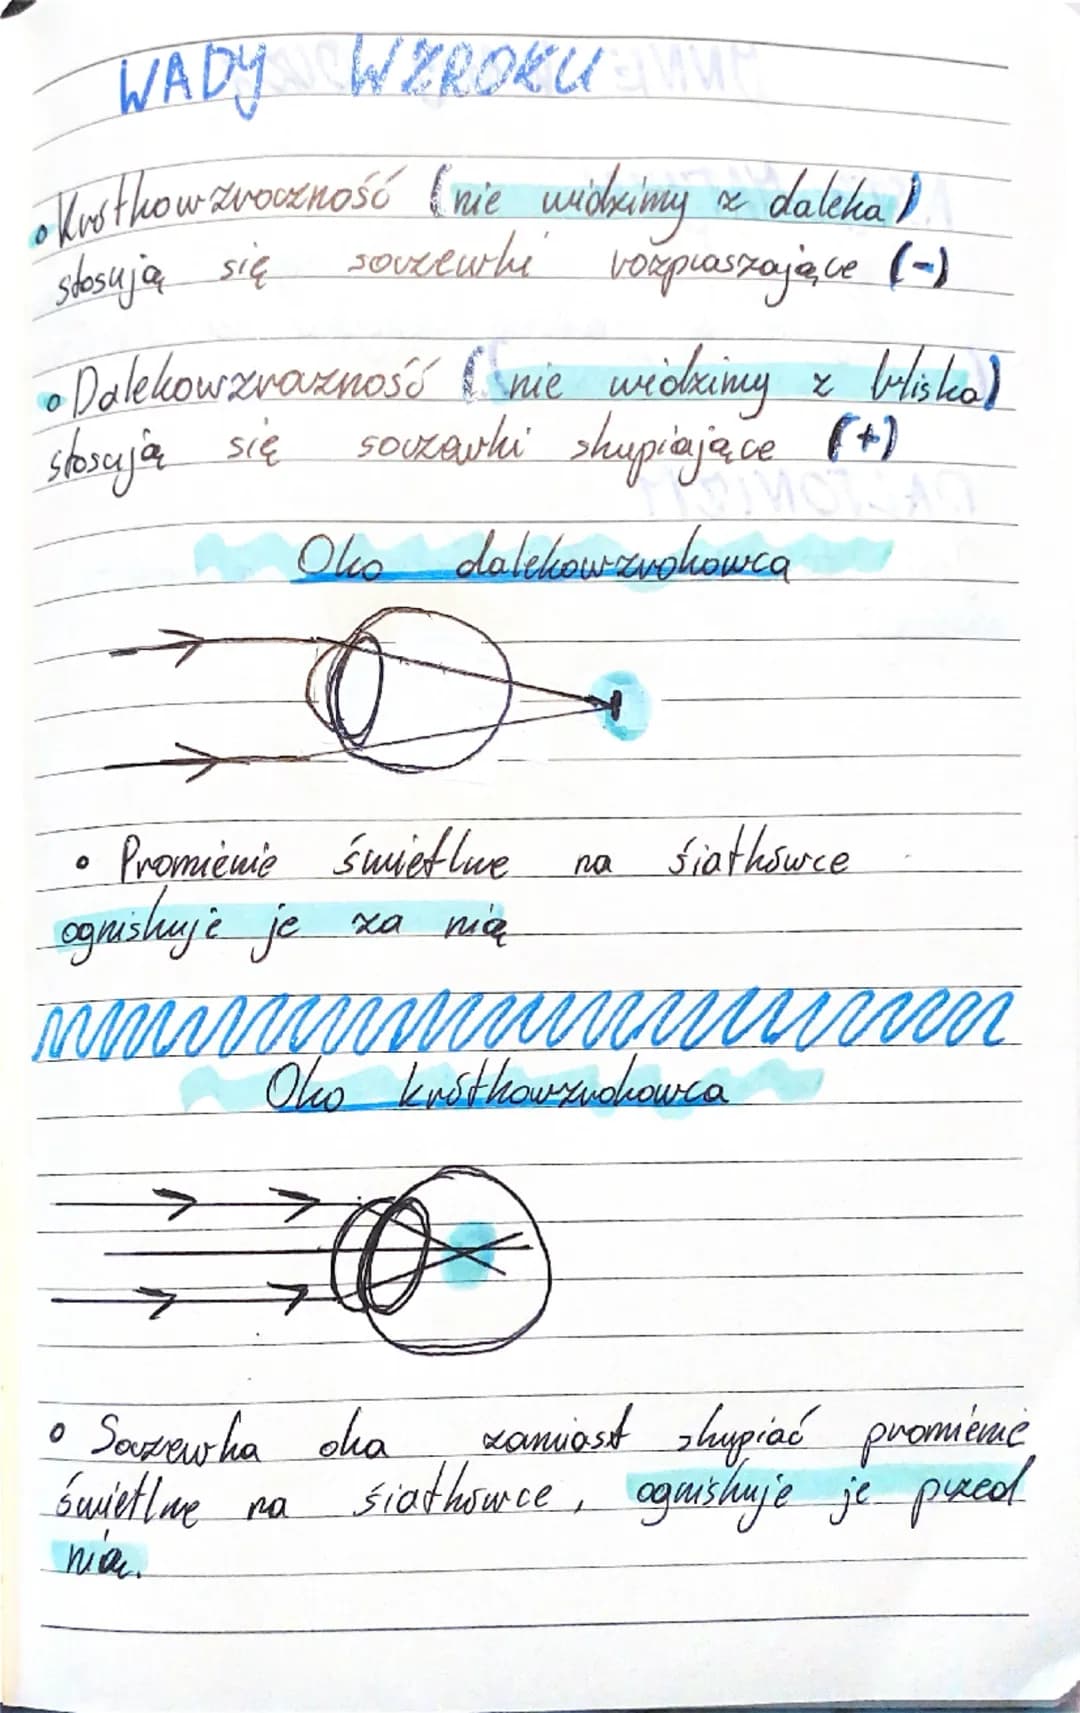 WADY WZROKU
• Krótkowzroczność (nie widzimy z daleka)
stosują się soczewki rozpraszające (-)
• Dalekowzroczność (nie widzimy z bliska)
stosują się soczewki skupiające (+)
Oko dalekowzrokowca
• Promienie świetlne na siatkówce
ogniskuje je za nią
Oko krótkowzrokowca
• Soczewka oka zamiast skupiać promienie
świetlne na siatkówce, ogniskuje je przed
nią.